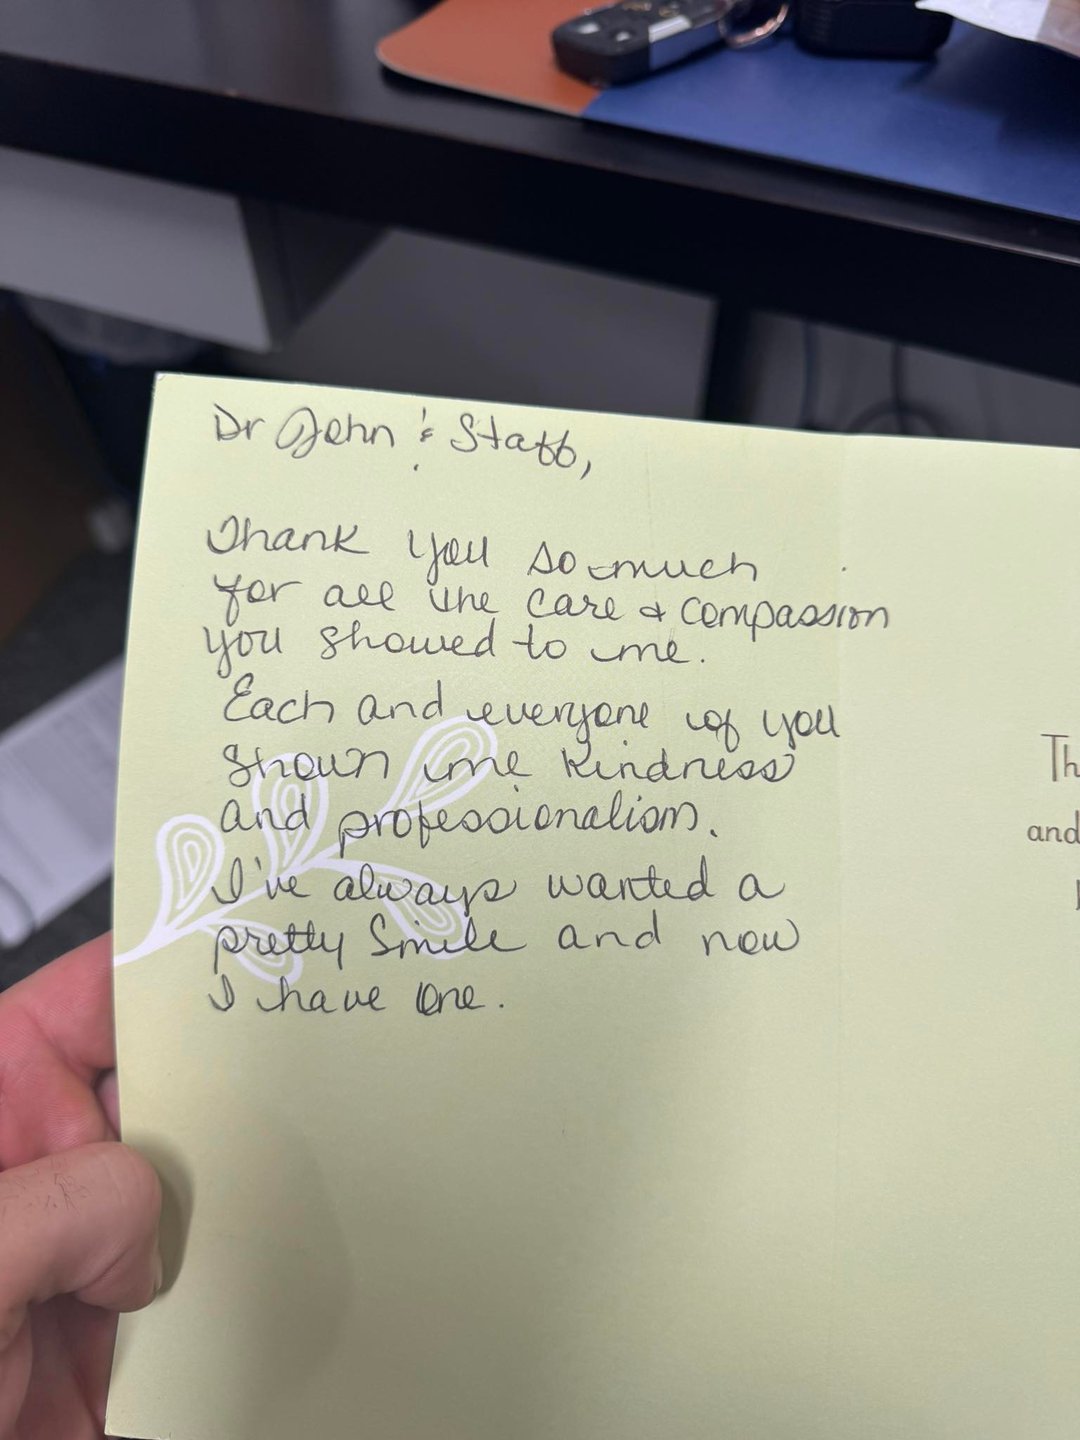 Dr John & Staff,
Thank you so much
for all the care & compassion
you showed to me.
Each and everyone of you
shown me kindness
and professionalism.
I've always wanted a
pretty smile and now
I have one.
Th
and